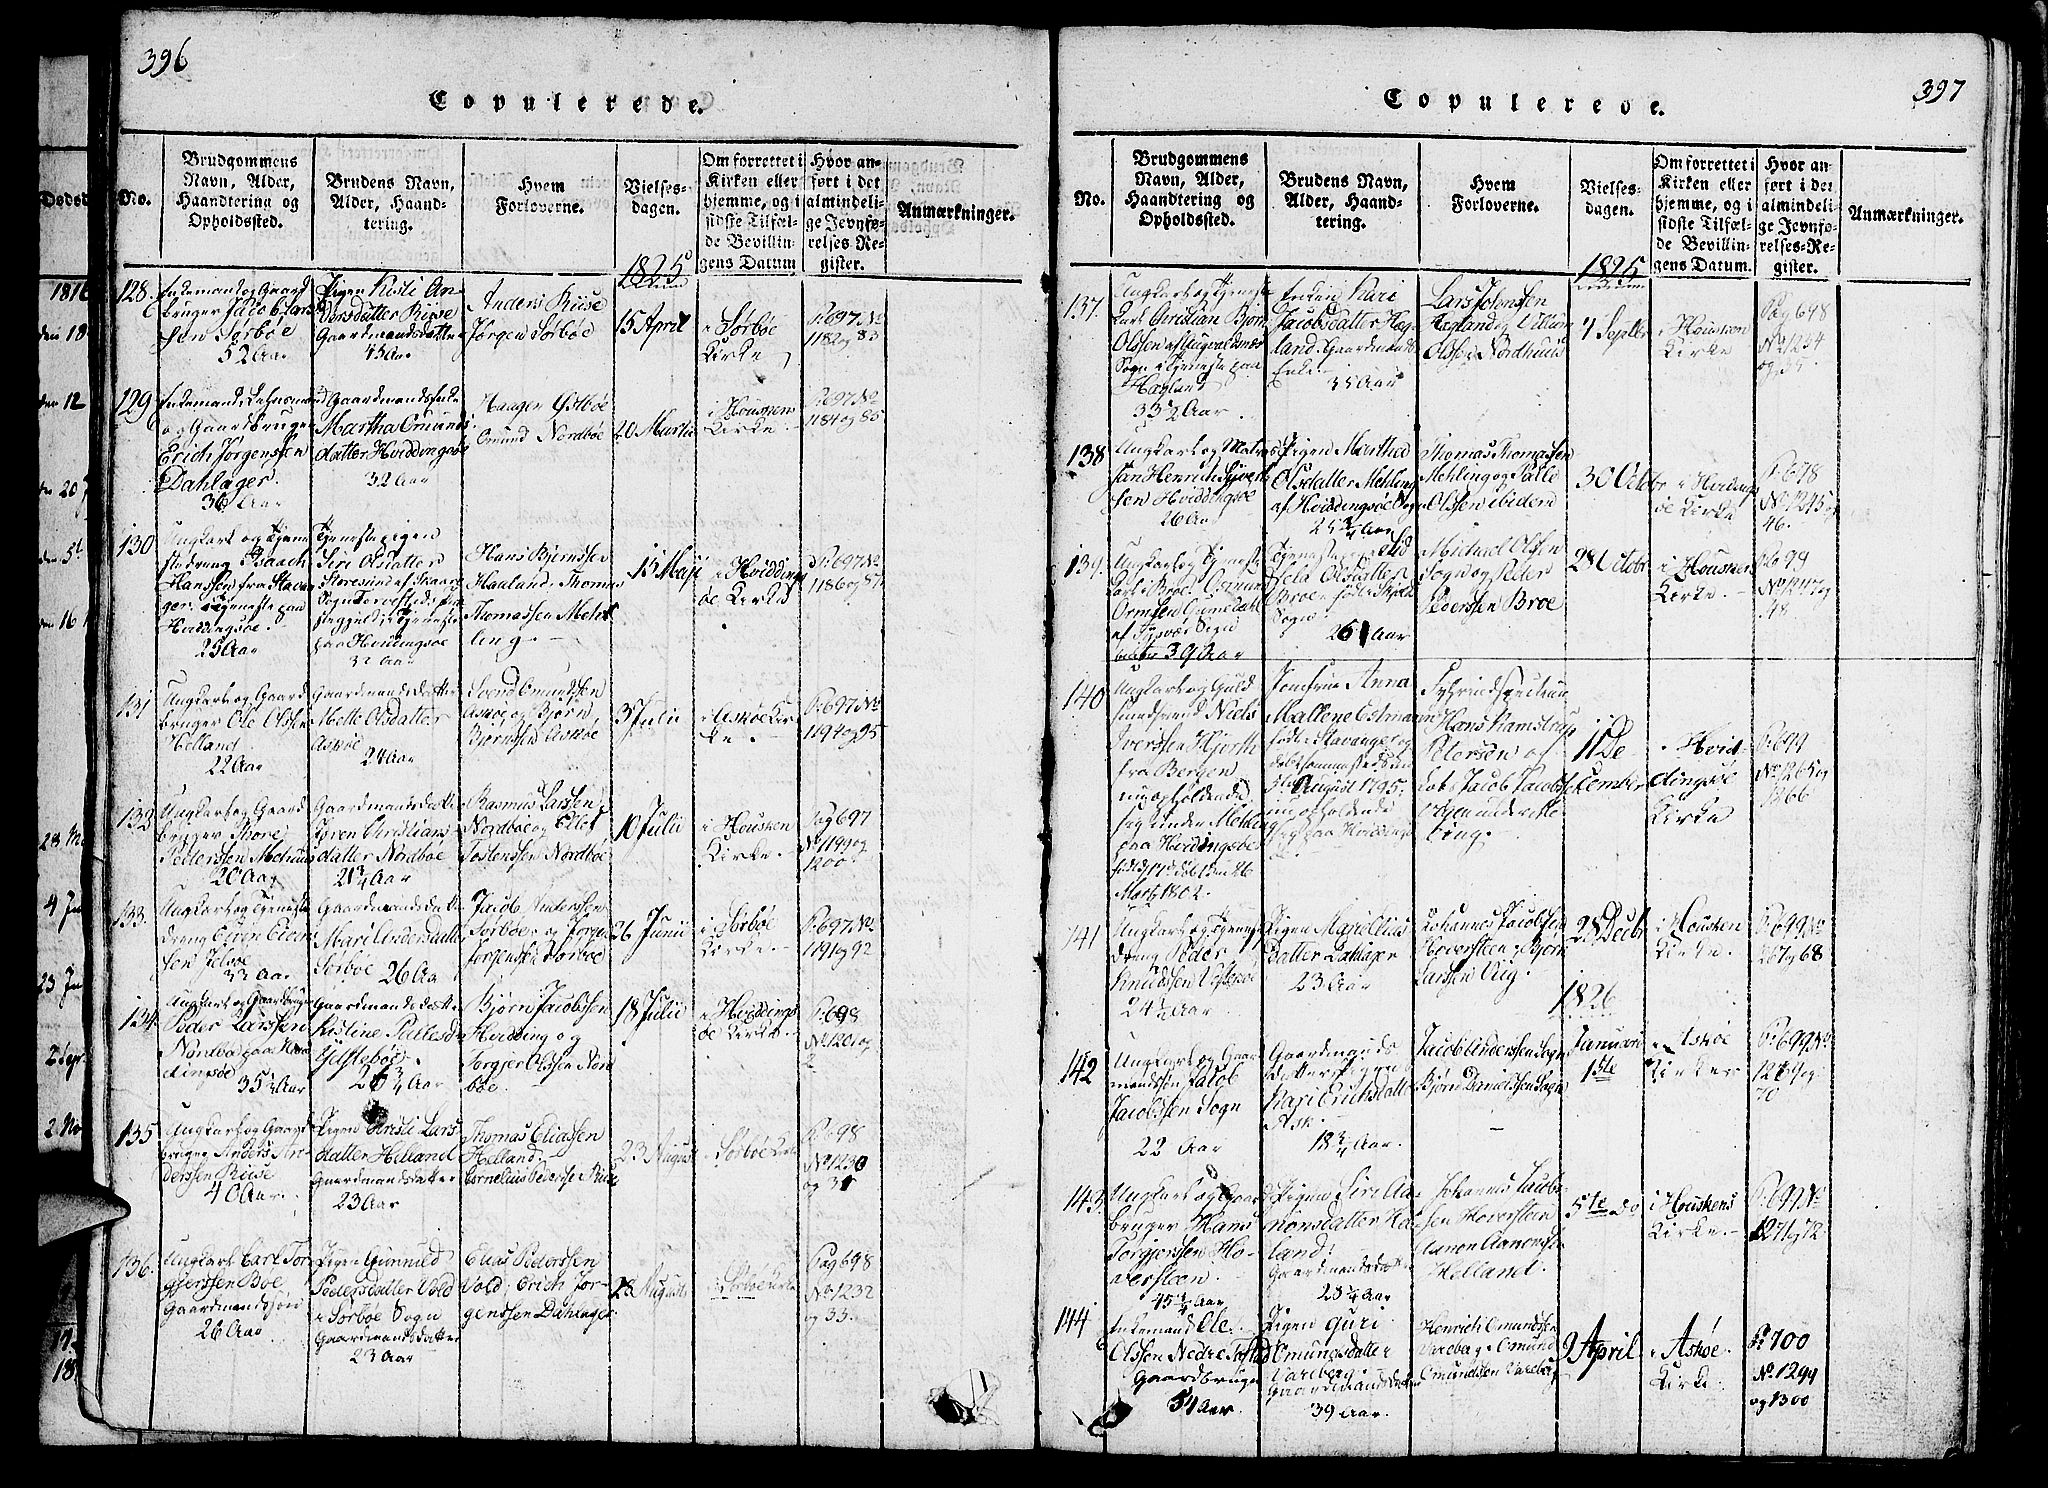 396
Copulerede.
No.
Brudgommens
Navn, Alder,
Haandtering og
Opholdssted.
Brudens Navn,
Alder, Haand-
tering.
Hvem
Forloverne.
Vielses-
dagen.
Om forrettet i
Kirken eller
hjemme, og i
sidste Tilfæl-
de Bevillin-
gens Datum
Hvor an-
ført i det
almindeli-
ge Jevnfø-
relses-Re-
gister.
Anmærkninger.
1825
128.
Enkemand og Gaard
bruger Jacob Lars
sen Sørbøe
52 Aar
Pigen Kisti An-
dersdatter Riise
Gaardmandsdatter
45 Aar
Anders Riise
Jørgen Sørbøe
15 April
i Sørbøe
Kirke
P. 697 No
1182 og 83
129
Enkemand
og Gaardbruger
Erich Jørgenssen
Dahlager.
36 Aar
Gaardmandsenke
Martha Omunds
datter Hviddingsøe
32 Aar
Haagen Østbøe
Omund Nordbøe
20 Martii
i Housken
Kirke.
P. 697 No
1184 og 85
130
Ungkarl og Tjene
stedreng Isaach
Hanssen fra Stavan
ger. i Tjeneste paa
Hviddingsøe.
25 Aar
Tjenestepigen
Siri Olsdatter
Storesund af Skaare
Sogn Torvestad
i Tjeneste
paa Hviddingsøe
32 Aar
Hans Bjørnssen
Hauland. Thomas
Thomassen Meh
ling.
15 Maji
i Hviddings
øe Kirke
P. 697 No
1186 og 87
131
Ungkarl og Gaard
bruger Ole Olsen
Helland.
22 Aar
Gaardmandsdatter
Mette Olsdatter
Askøe
24 Aar
Svend Omundssen
Askøe og Bjørn
Bjørnssen Askøe
3 Julii
i Askøe Kir
ke.
P. 697 No
1194 og 95
132
Ungkarl og Gaard
bruger Thore
Pederssen Mehuus
20 Aar
Gaardmandsdatter
Søren Christians
datter Nordbøe
21 3/4 Aar
Rasmus Larssen
Nordbøe og Ellef
Tostenssen Nordbøe
10 Julii
i Housken
Kirke.
Pag 697
No 1199 og
1200
133.
Ungkarl og Tjeneste
dreng Even Even
sen Jelsøe
33 Aar
Gaardmandsdatter
Mari Andersdatter
Sørbøe 26 Aar
Jacob Anderssen
Sørbøe og Jørgen
Jørgenssen Sørbøe
26 Junii
i Sørbøe
Kirke.
P. 697 No
1191 og 92
134.
Ungkarl og Gaardbruger
Peder Larssen
Nordbø paa Hvid
dingsøe
35 1/2 Aar
Gaardmandsdatter
Kistine Pallesd
26 3/4 Aar
Bjørn Jacobssen
Hvidding og
Torgjer Olssen Nor
bøe.
18 Julii
i Hviddings
øe Kirke.
P. 698
No 1201 og
2
135
Ungkarl og Gaard
bruger Anders An
derssen Riise
40 Aar.
Pigen Kristi Lars
datter Helland
Gaardmandsdatter
23 Aar
Thomas Eliassen
Helland.
Cornelius Pederssen Riise
23 Augusti
i Sørbøe Kirke
P. 698
No 1230
og 31
136.
Ungkarl Carl Tor
gjerssen Boe
Gaardmandssøn
26 Aar
Pigen Gunnild
Pedersdatter Vold
i Sørbøe Sogn
Gaardmandsdatter
23 Aar
Elias Pederssen
Vold; Erich Jør-
genssen Dahlager
28 Augusti
i Sørbøe Kirke
Pag 698
No 1232
og 33.
397
Copulerede.
No.
Brudgommens
Navn, Alder,
Haandtering og
Opholdssted.
Brudens Navn,
Alder, Haand-
tering.
Hvem
Forloverne.
Vielses-
dagen.
Om forrettet i
Kirken eller
hjemme, og i
sidste Tilfæl-
de Bevillin-
gens Datum.
Hvor an-
ført i det
almindeli-
ge Jevnfø-
relses-Re-
gister.
Anmærkninger.
1825
137.
Ungkarl og Tjeneste
Karl Christian Bjørn
Olssen af Augvaldsnæs
Sogn i Tjeneste paa
Hagland
33 1/2 Aar
Enken Kari
Jacobsdatter Hag
land. Gaardmands
Enke
35 Aar
Lars Johnssen
Hagland og Villum
Olssen Nordhuus
4 Septbr
i Housken
Kirke
Pag 698
No 1234
138
Ungkarl og Matros
Jan Henrich Siverts
sen Hviddingsøe
26 Aar
Pigen Martha
Olsdatter Mehling
af Hviddingsøe Sogn
25 3/4 Aar
Thomas Thomassen
Mehling og Palle
Olssen ibidem
30 Octbr
i Hvidings
øe Kirke
P. 698
No 1245 og
46.
139.
Ungkarl og Tjeneste
Karl i Broe. Osmund
Ormsen Gumedahl
af Tysvær Sogn
39 Aar
Tjenestepigen
Olsdatter
Broe
Sogn.
26 1/2 Aar
Michael Olsen
Sogn og Peder
Pederssen Broe
28 Octobr
i Housken
Kirke.
P. 699
No 1247 og
48
140
Ungkarl og Guld
smedsvend Niels
Iverssen Hjorth
fra Bergen
nu opholdende
sig under Mehling
paa Hvidingsøe
født d 17 døbt den 26
Marty 1802.
Jomfrue Anna
Mallene Ostmann
født i Stavanger og
døbt sammesteds
August 1795.
nu opholdende
sig paa Hvidingsøe
Fyrinspecteur
Hans Ramstrup
Petersen af
Lods Jacob Jacobsen
11 De
cember
i Hvid-
dingsøe
Kirke
P. 699
No 1265 og
1266
141
Ungkarl og Tjeneste
dreng Peder
Knudssen Vestbøe
24 1/2 Aar
Pigen Mari Elias
datter Dahlager
23 Aar
Johannes Jacobssen
Hoversteen; Bjørn
Larssen Aug
28 Decbr
i Housken
Kirke.
P. 699 No
1267 og 68
1826
142
Ungkarl og Gaard
mandssøn Jacob
Jacobssen Sogn
22 Aar
Gaardmands
datter Pigen
Kari Erichsdatter
Ask.
18 3/4 Aar.
Jacob Anderssen Sogn
Bjørn Danielssen Sogn
Januari
1ste
i Askøe
Kirke
P. 699 No
1269 og
70
143.
Ungkarl og Gaard
bruger Hans
Torgjerssen Ho-
versteen.
45 3/4 Aar
Pigen Siri Aa-
nonsdatter He
land.
Gaardmandsdatter
23 1/4 Aar
Johannes Jacobs
sen Hoversteen
Aanon Aanonssen
Helland.
5te do
i Houskens
Kirke.
P. 699 No
1271 og 72
144
Enkemand Ole
Olssen Nedre Tostad
Gaardbruger
54 Aar.
Pigen Guri
Omundsdatter
Vareberg.
Gaardmandsdatter
39 Aar
Henrich Omundssen
Vareberg & Omund
Omundssen Vareberg
9 April
i Askøe
Kirke.
P. 700
No 1299
og 1300